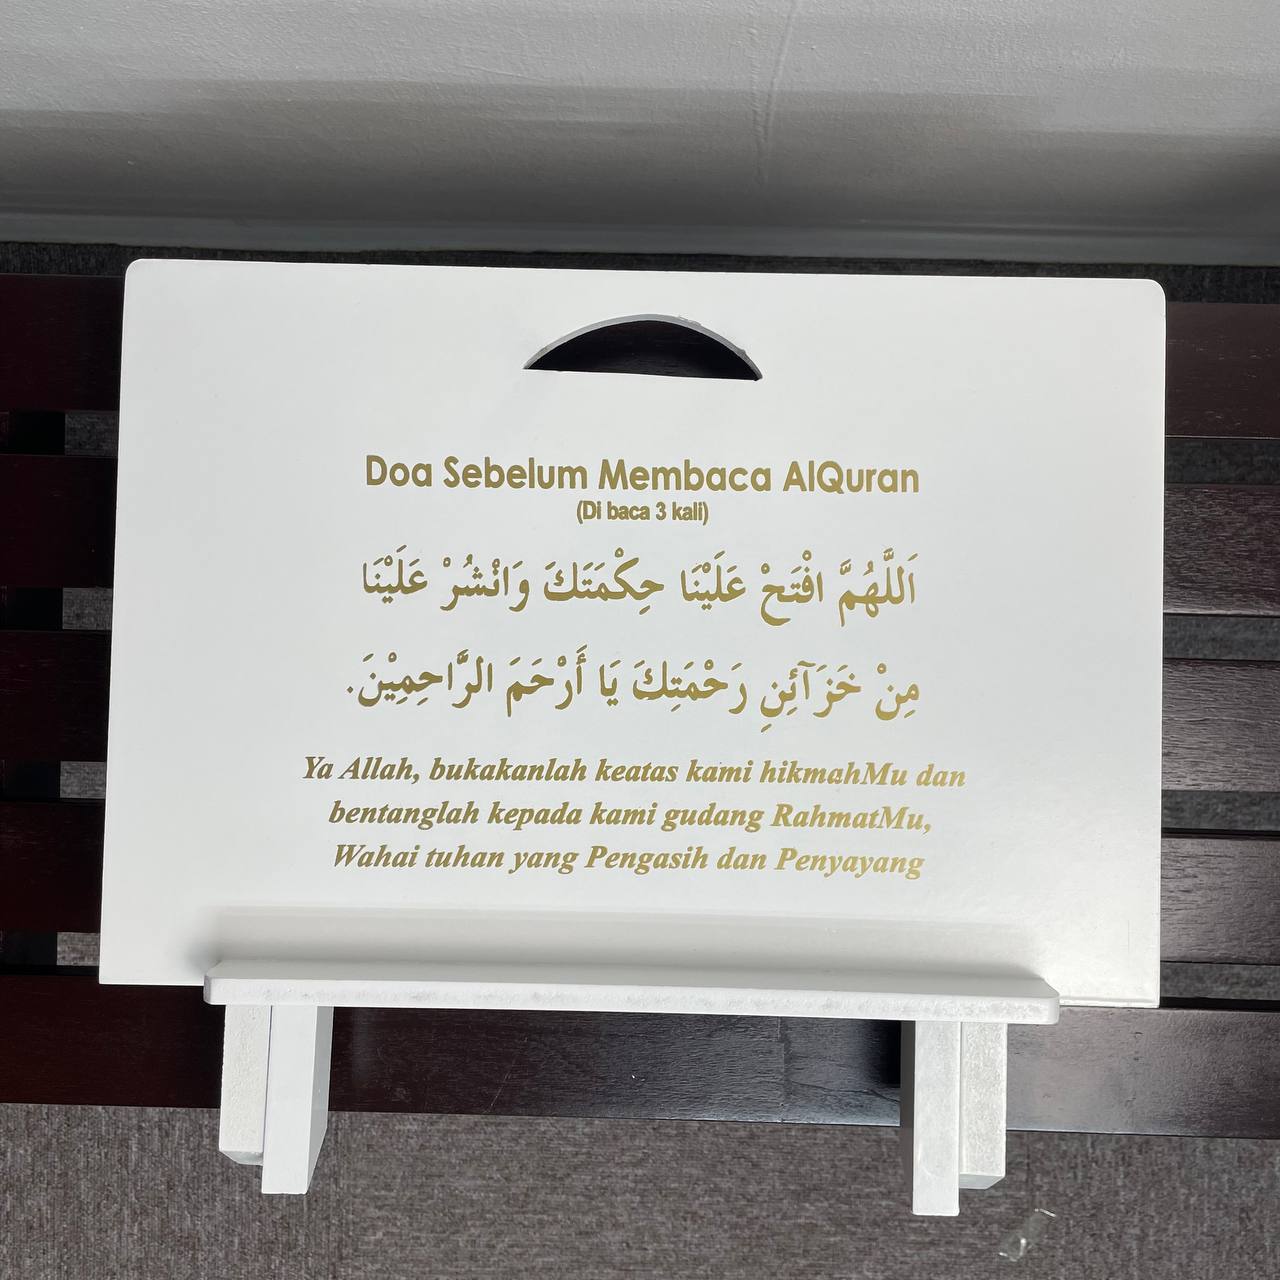 Doa Sebelum Membaca AlQuran
(Di baca 3 kali)
اَللَّهُمَّ افْتَحْ عَلَيْنَا حِكْمَتَكَ وَانْشُرْ عَلَيْنَا
مِنْ خَزَآئِنِ رَحْمَتِكَ يَا أَرْحَمَ الرَّاحِمِيْنَ.
Ya Allah, bukakanlah keatas kami hikmahMu dan
bentanglah kepada kami gudang RahmatMu,
Wahai tuhan yang Pengasih dan Penyayang